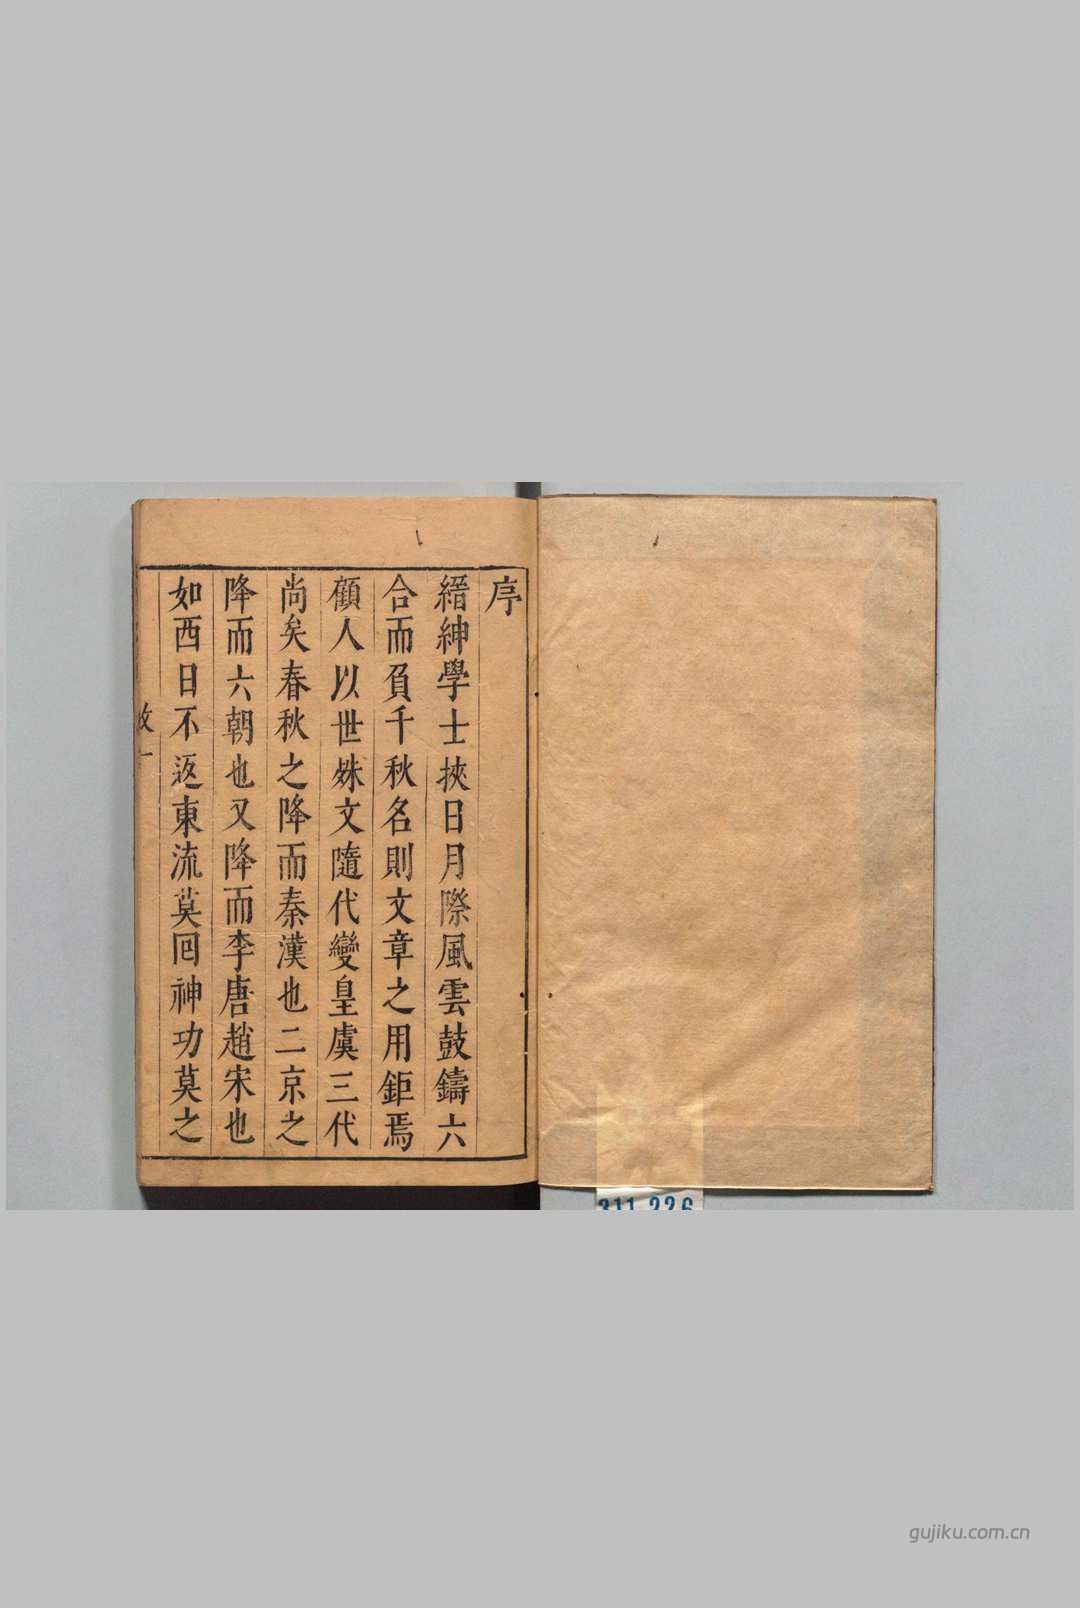 序
縉紳學士挾日月際風雲鼓鑄六
合而負千秋名則文章之用鉅焉
顧人以世殊文隨代變皇虞三代
尚矣春秋之降而秦漢也二京之
降而六朝也又降而李唐趙宋也
如西日不返東流莫回神功莫之
311 226
gujiku.com.cn